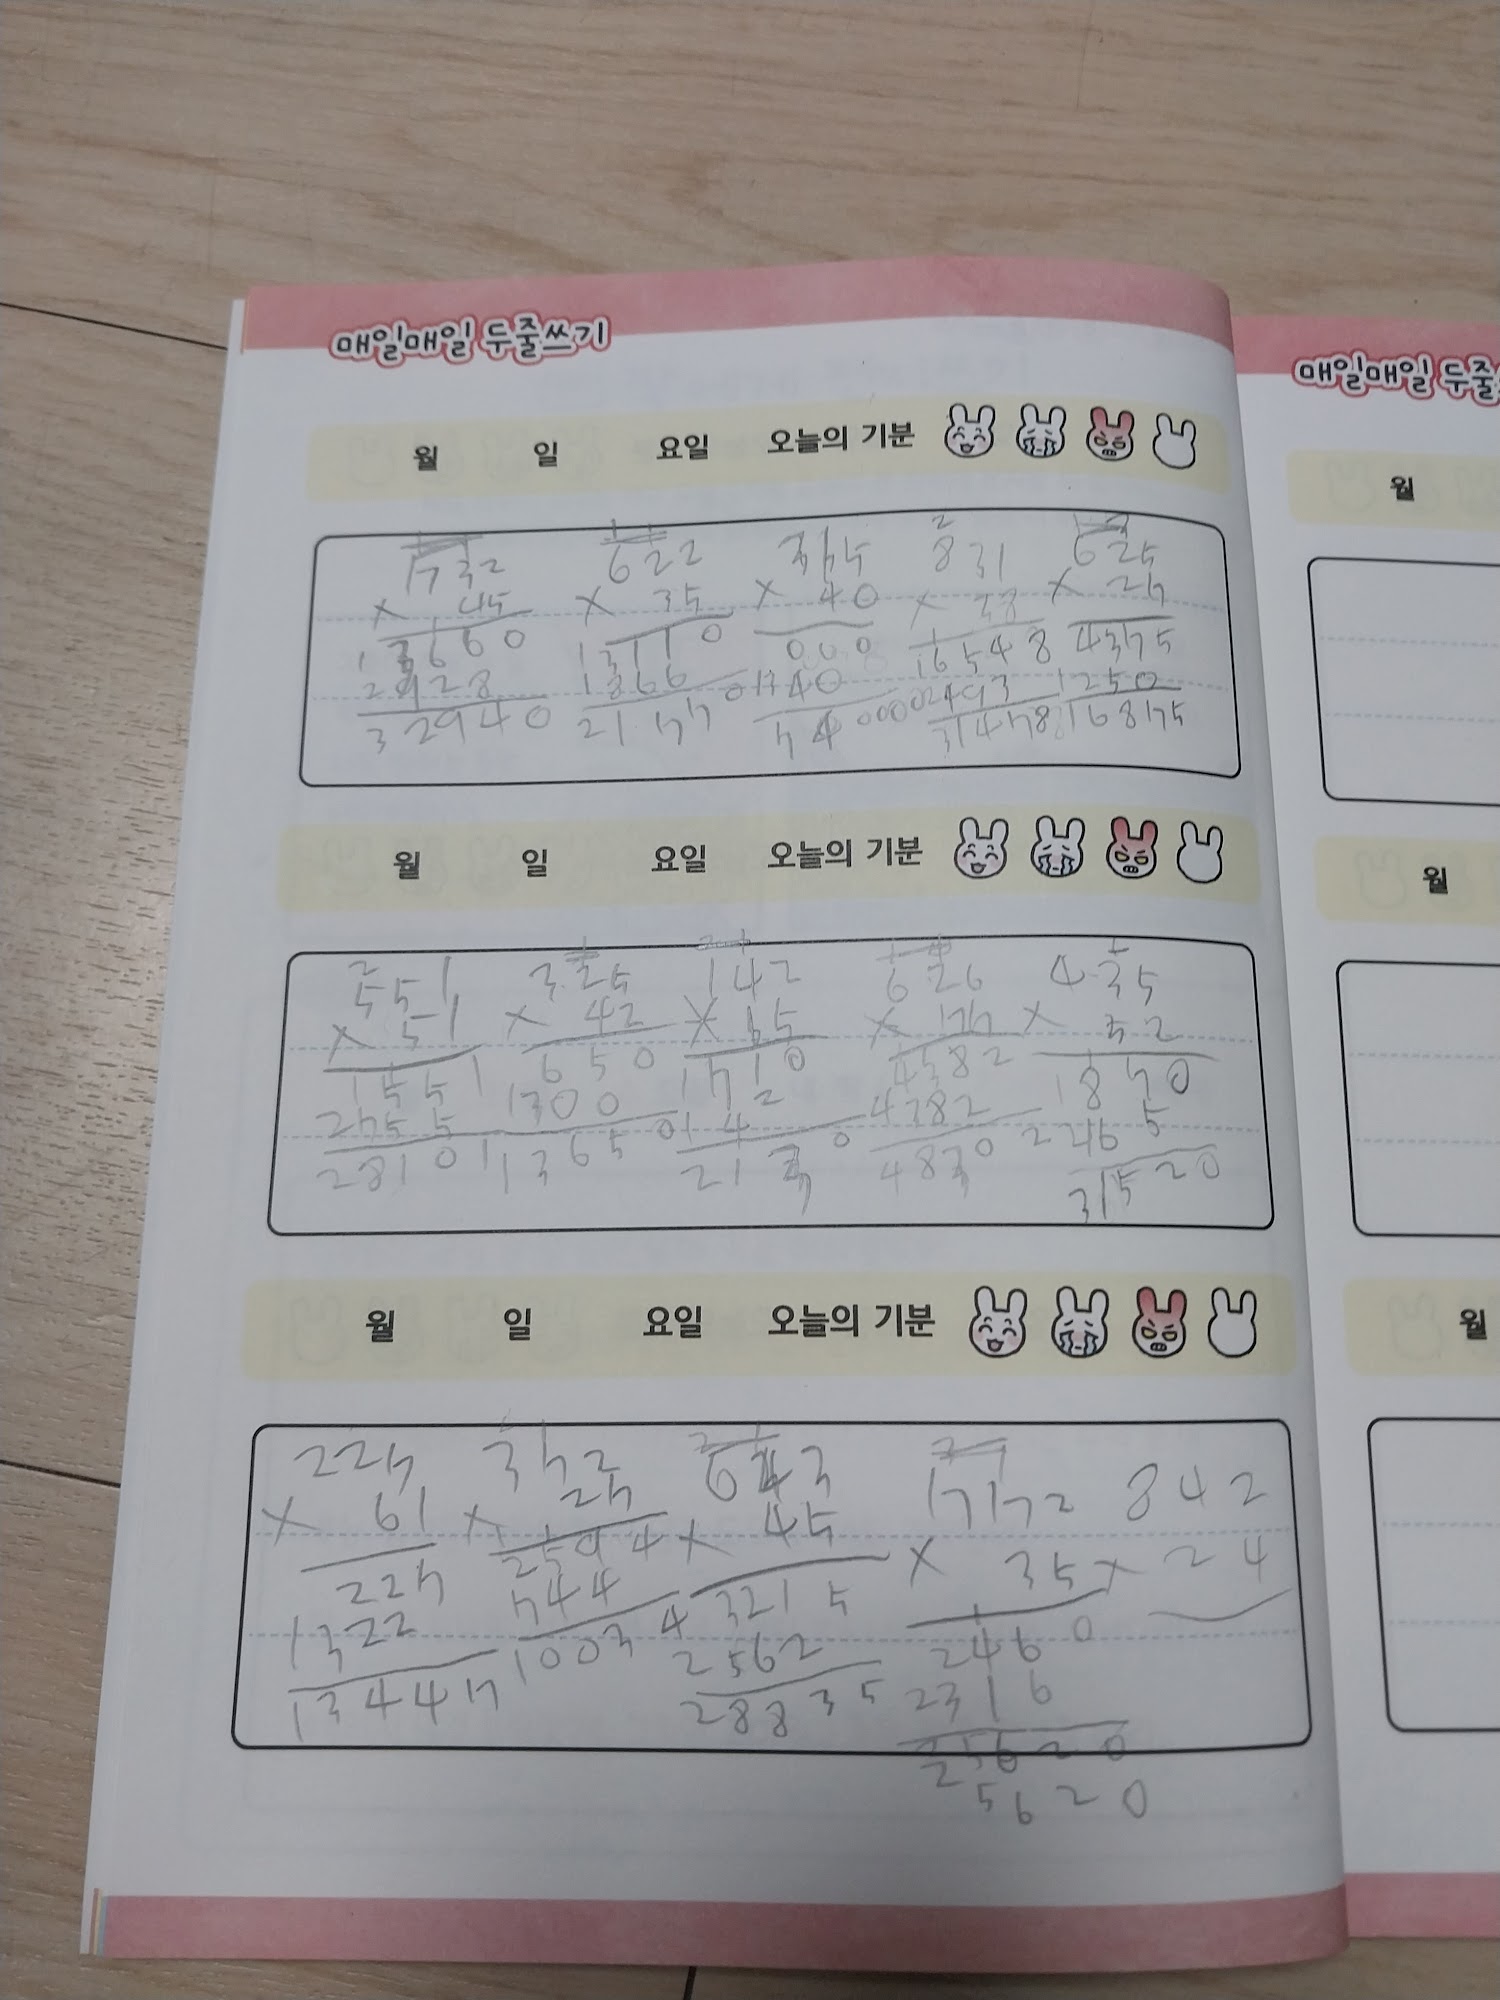 매일매일 두줄쓰기
매일매일 두줄
월 일 요일 오늘의 기분
월
732 622 365 831 625
× 45 × 35 × 40 × 38 × 27
3660 3110 000 6548 4375
2928 1866 2493 1250
32940 2177 31478 16875
월 일 요일 오늘의 기분
월
551 325 142 626 435
× 51 × 42 × 65 × 77 × 52
551 650 710 4382 870
2755 1300 4382
28101 13650 48302
월 일 요일 오늘의 기분
월
227 372 643 772 842
× 61 × 27 × 45 × 35 × 24
227 2594 3215 2460
1322 744 2562 2316
13447 10034 28835 25620
5620